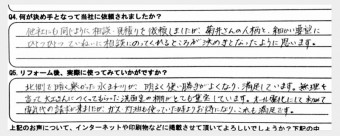 Q4. 何が決め手となって当社に依頼されましたか?
他社にも同じように相談・見積りを依頼しましたが、菊井さんの人柄と、細かい要望に
ひとつひとつていねいに相談にのってくれるところが決めてとなったように思います。
Q5. リフォーム後、実際に使ってみていかがですか?
北側で暗く寒かった水まわりが、明るく使い勝手がよくなり、満足しています。無理を
言って大工さんにつくってもらった洗面室の棚がとても重宝しています。オール電化にして初めて
電気代の請求が来ましたが、ガス・灯油も使っていた時よりお得になり、これも満足です。
上記のお声について、インターネットや印刷物などに掲載させて頂いてよろしいでしょうか?下記の中